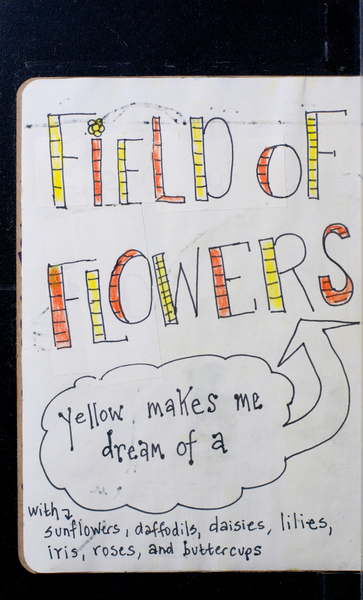 FiELD OF
FLOWERS
yellow makes me
dream of a
with
sunflowers, daffodils, daisies, lilies,
iris, roses, and buttercups